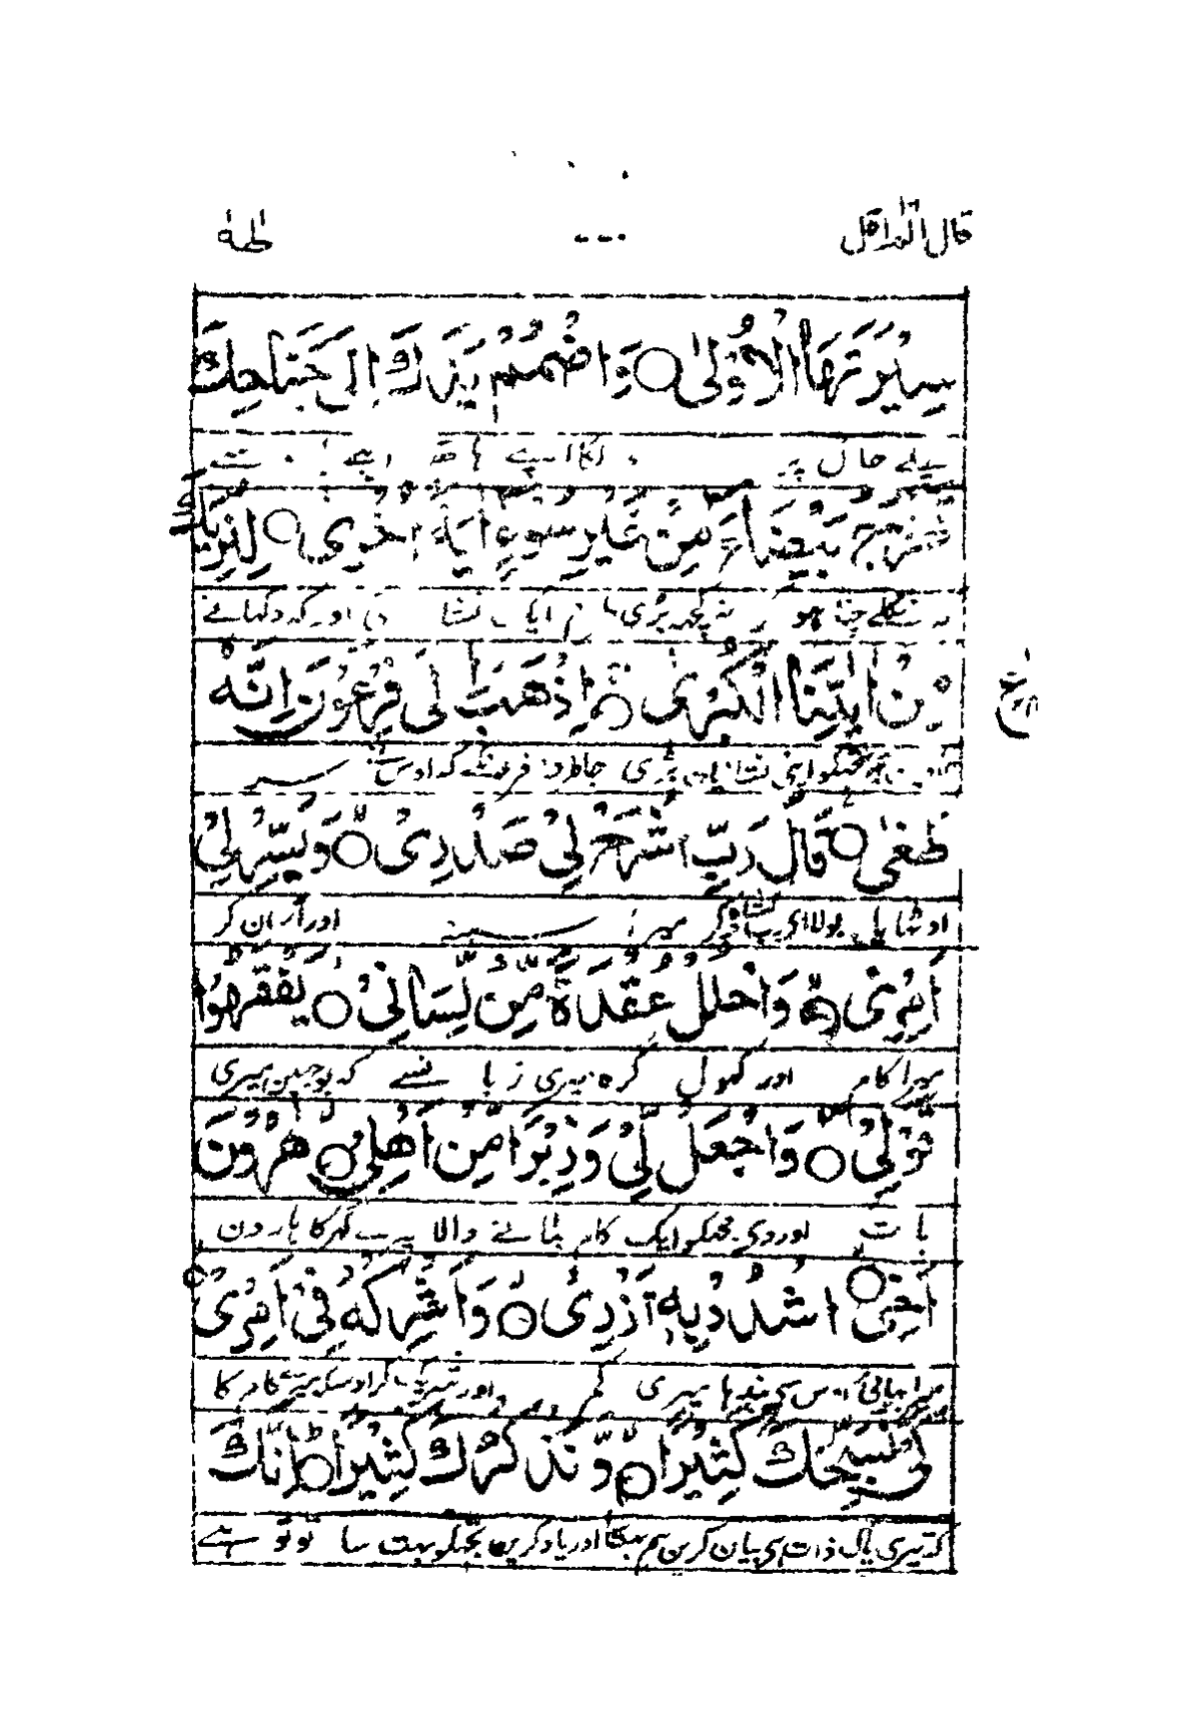 قال الم اقل
طٰهٰ
سِيْرَتَهَا الْاُوْلٰى ○ وَاضْمُمْ يَدَكَ اِلٰى جَنَاحِكَ
پہلے حال پر لگا اپنے ہاتھ اپنے
تَخْرُجْ بَيْضَآءَ مِنْ غَيْرِ سُوْٓءٍ اٰيَةً اُخْرٰى ○ لِنُرِيَكَ
نکلے چٹا ہو نہ کچھ بری ایک نشا اور کہ دکھاتے
مِنْ اٰيٰتِنَا الْكُبْرٰى ○ اِذْهَبْ اِلٰى فِرْعَوْنَ اِنَّهٗ
اپنی نشانیاں بڑی جا طرف فرعون کے کہ اوس
طَغٰى ○ قَالَ رَبِّ اشْرَحْ لِيْ صَدْرِيْ ○ وَيَسِّرْ لِيْ
بولا ای رب میرا سینہ اور آسان کر
اَمْرِيْ ○ وَاحْلُلْ عُقْدَةً مِّنْ لِّسَانِيْ ○ يَفْقَهُوْا
میرا کام اور کھول گرہ میری زبا نسے کہ بوجہیں میری
قَوْلِيْ ○ وَاجْعَلْ لِّيْ وَزِيْرًا مِّنْ اَهْلِيْ ○ هٰرُوْنَ
بات اور دی مجکو ایک کام بٹانے والا میرے گہر کا ہارون
اَخِيْ ○ اشْدُدْ بِهٖٓ اَزْرِيْ ○ وَاَشْرِكْهُ فِيْٓ اَمْرِيْ ○
میرا بھائی اوس سی بندہا میری کمر اور شریک کر اوسکو میرے کام کا
كَيْ نُسَبِّحَكَ كَثِيْرًا ○ وَّنَذْكُرَكَ كَثِيْرًا ○ اِنَّكَ
کہ تیری پاک ذات بیان کریں ہم بہت سا اور یاد کریں تجہکو بہت سا تو تو ہے